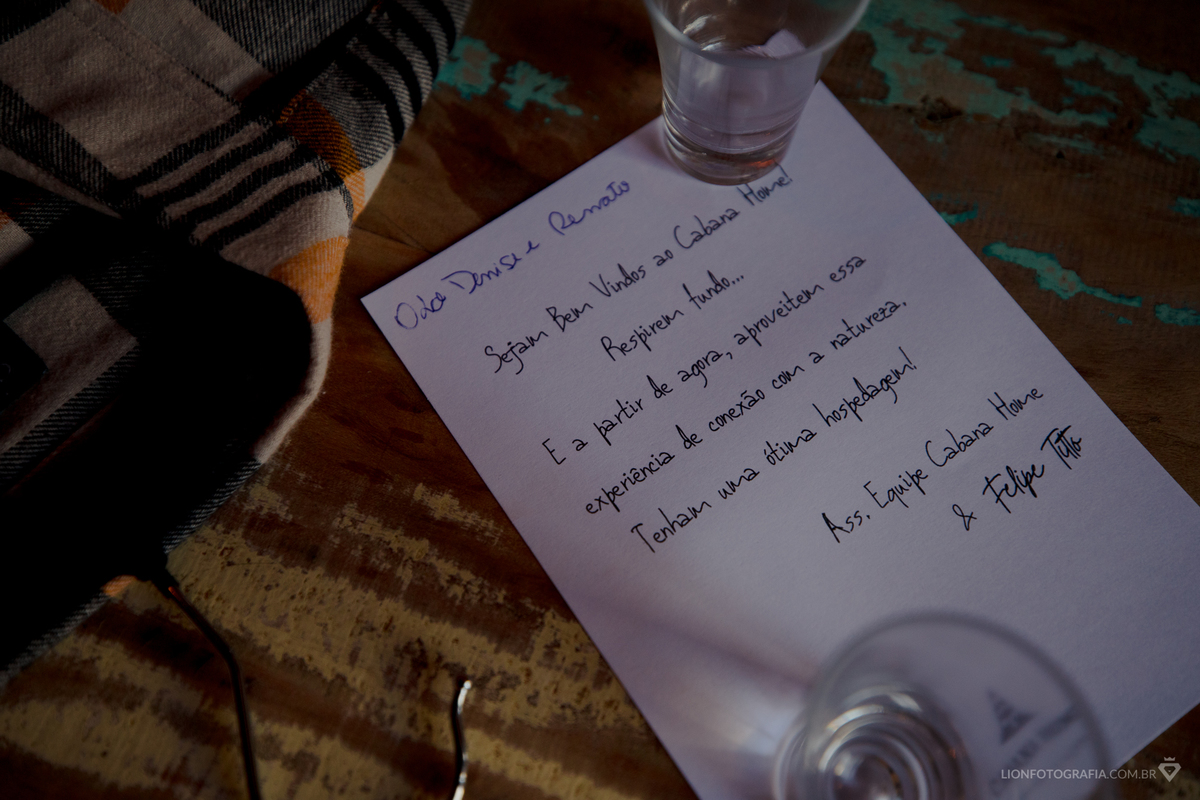 Denise e Renato
Sejam Bem Vindos ao Cabana Home!
Respirem fundo...
E a partir de agora, aproveitem essa
experiência de conexão com a natureza.
Tenham uma ótima hospedagem!
Ass. Equipe Cabana Home
& Felipe Titto
LIONFOTOGRAFIA.COM.BR